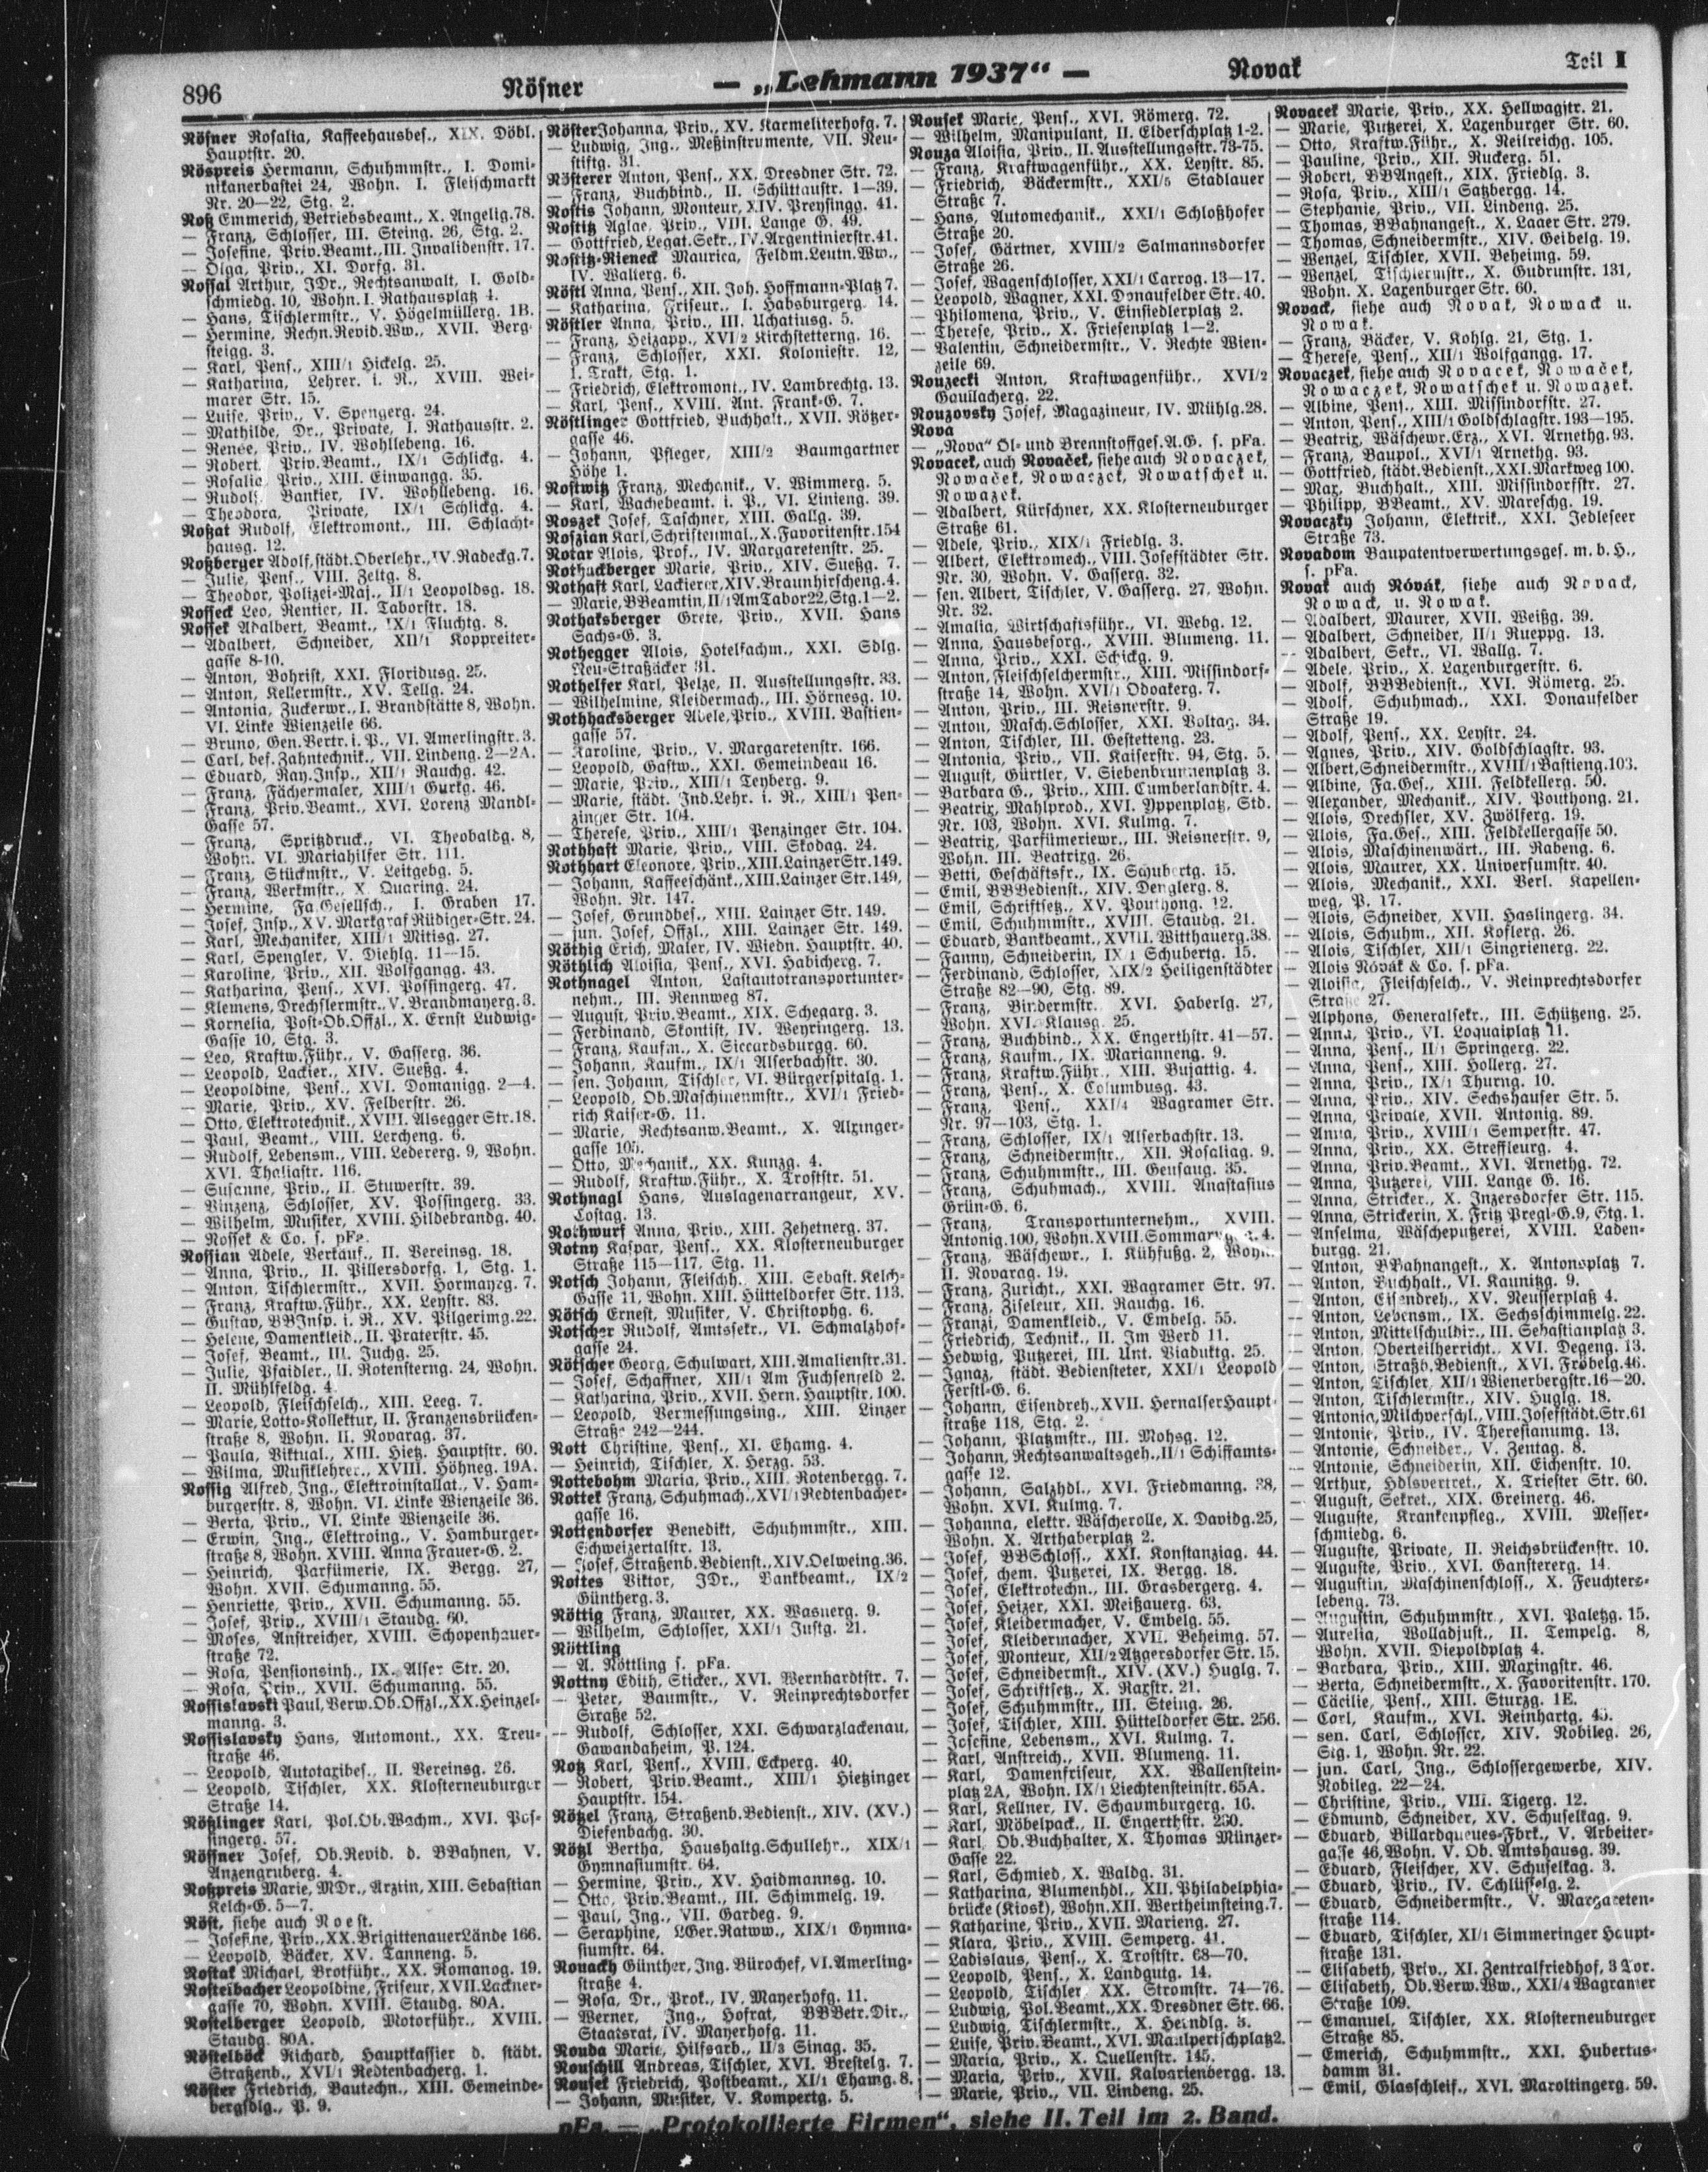 896 Nösner — „Lehmann 1937“ — Novak Teil I
Nösner Rosalia, Kaffeehausbes., XIX. Döbl.
Hauptstr. 20.
Nöspreis Hermann, Schuhmmstr., I. Domi-
nikanerbastei 24, Wohn. I. Fleischmarkt
Nr. 20—22, Stg. 2.
Noß Emmerich, Betriebsbeamt., X. Angelig.78.
— Franz, Schlosser, III. Steing. 26, Stg. 2.
— Josefine, Priv.Beamt., III. Invalidenstr. 17.
— Olga, Priv., XI. Dorfg. 31.
Nossal Arthur, JDr., Rechtsanwalt, I. Gold-
schmiedg. 10, Wohn. I. Rathausplatz 4.
— Hans, Tischlermstr., V. Högelmüllerg. 1B.
— Hermine, Rechn.Revid.Ww., XVII. Berg-
steigg. 3.
— Karl, Pens., XIII/1 Hickelg. 25.
— Katharina, Lehrer. i. R., XVIII. Wei-
marer Str. 15.
— Luise, Priv., V. Spengerg. 24.
— Mathilde, Dr., Private, I. Rathausstr. 2.
— Renée, Priv., IV. Wohllebeng. 16.
— Robert, Priv.Beamt., IX/1 Schlickg. 4.
— Rosalie, Priv., XIII. Einwangg. 35.
— Rudolf, Bankier, IV. Wohllebeng. 16.
— Theodora, Private, IX/1 Schlickg. 4.
Noßat Rudolf, Elektromont., III. Schlacht-
hausg. 12.
Noßberger Adolf, städt.Oberlehr., IV. Radeckg.7.
— Julie, Pens., VIII. Zeltg. 8.
— Theodor, Polizei-Maj., II/1 Leopoldsg. 18.
Nosseck Leo, Rentier, II. Taborstr. 18.
Nossek Adalbert, Beamt., IX/1 Fluchtg. 8.
— Adalbert, Schneider, XII/1 Koppreiter-
gasse 8-10.
— Anton, Bohrist, XXI. Floridusg. 25.
— Anton, Kellermstr., XV. Tellg. 24.
— Antonia, Zuckerwr., I. Brandstätte 8, Wohn.
VI. Linke Wienzeile 66.
— Bruno, Gen.Vertr. i. P., VI. Amerlingstr. 3.
— Carl, bef. Zahntechnik., VII. Lindeng. 2—2A.
— Eduard, Ray.Insp., XII/1 Rauchg. 42.
— Franz, Fächermaler, XIII/1 Gurkg. 46.
— Franz, Priv.Beamt., XVI. Lorenz Mandl-
Gasse 57.
— Franz, Spritzdruck., VI. Theobaldg. 8,
Wohn. VI. Mariahilfer Str. 111.
— Franz, Stückmstr., V. Leitgebg. 5.
— Franz, Werkmstr., X. Quaring. 24.
— Hermine, Fa.Gesellsch., I. Graben 17.
— Josef, Insp., XV. Markgraf Rüdiger-Str. 24.
— Karl, Mechaniker, XIII/1 Mitisg. 27.
— Karl, Spengler, V. Diehlg. 11—15.
— Karoline, Priv., XII. Wolfgangg. 43.
— Katharina, Pens., XVI. Possingerg. 47.
— Klemens, Drechslermstr., V. Brandmayerg. 3.
— Kornelia, Post-Ob.Offzl., X. Ernst Ludwig-
Gasse 10, Stg. 3.
— Leo, Kraftw.Führ., V. Gasserg. 36.
— Leopold, Lackier., XIV. Sueßg. 4.
— Leopoldine, Pens., XVI. Domanigg. 2—4.
— Marie, Priv., XV. Felberstr. 26.
— Otto, Elektrotechnik., XVIII. Alsegger Str.18.
— Paul, Beamt., VIII. Lercheng. 6.
— Rudolf, Lebensm., VIII. Ledererg. 9, Wohn.
XVI. Thaliastr. 116.
— Susanne, Priv., II. Stuwerstr. 39.
— Vinzenz, Schlosser, XV. Possingerg. 33.
— Wilhelm, Musiker, XVIII. Hildebrandg. 40.
— Nossek & Co. s. pFa.
Nossian Adele, Verkauf., II. Vereinsg. 18.
— Anna, Priv., II. Pillersdorfg. 1, Stg. 1.
— Anton, Tischlermstr., XVII. Hormayrg. 7.
— Franz, Kraftw.Führ., XX. Leystr. 83.
— Gustav, BBInsp. i. R., XV. Pilgerimg.22.
— Helene, Damenkleid., II. Praterstr. 45.
— Josef, Beamt., III. Juchg. 25.
— Julie, Pfaidler., II. Rotensterng. 24, Wohn.
II. Mühlfeldg. 4.
— Leopold, Fleischselch., XIII. Leeg. 7.
— Marie, Lotto-Kollektur, II. Franzensbrücken-
straße 8, Wohn. II. Novarag. 37.
— Paula, Viktual., XIII. Hietz. Hauptstr. 60.
— Wilma, Musiklehrer., XVIII. Höhneg. 19A.
Nossig Alfred, Ing., Elektroinstallat., V. Ham-
burgerstr. 8, Wohn. VI. Linke Wienzeile 36.
— Berta, Priv., VI. Linke Wienzeile 36.
— Erwin, Ing., Elektroing., V. Hamburger-
straße 8, Wohn. XVIII. Anna Frauer-G. 2.
— Heinrich, Parfümerie, IX. Bergg. 27,
Wohn. XVII. Schumanng. 55.
— Henriette, Priv., XVII. Schumanng. 55.
— Josef, Priv., XVIII/1 Staudg. 60.
— Moses, Anstreicher, XVIII. Schopenhauer-
straße 72.
— Rosa, Pensionsinh., IX. Alser Str. 20.
— Rosa, Priv., XVII. Schumanng. 55.
Nossislavski Paul, Verw.Ob.Offzl., XX. Heinzel-
manng. 3.
Nossislavsky Hans, Automont., XX. Treu-
straße 46.
— Leopold, Autotaxibes., II. Vereinsg. 26.
— Leopold, Tischler, XX. Klosterneuburger
Straße 14.
Nößlinger Karl, Pol.Ob.Wachm., XVI. Pos-
singerg. 57.
Nössner Josef, Ob.Revid. d. BBahnen, V.
Anzengruberg. 4.
Noßpreis Marie, MDr., Ärztin, XIII. Sebastian
Kelch-G. 5—7.
Nöst, siehe auch Noest.
— Josefine, Priv., XX. Brigittenauer Lände 166.
— Leopold, Bäcker, XV. Tanneng. 5.
Nostak Michael, Brotführ., XX. Romanog. 19.
Nosteibacher Leopoldine, Friseur, XVII. Lackner-
gasse 70, Wohn. XVIII. Staudg. 80A.
Nostelberger Leopold, Motorführ., XVIII.
Staudg. 80A.
Nöstelböck Richard, Hauptkassier d. städt.
Straßenb., XVI/1 Redtenbacherg. 1.
Nöster Friedrich, Bautechn., XIII. Gemeinde-
bergsdlg., P. 9.
Nöster Johanna, Priv., XV. Karmeliterhofg. 7.
— Ludwig, Ing., Meßinstrumente, VII. Neu-
stiftg. 31.
Nösterer Anton, Pens., XX. Dresdner Str. 72.
— Franz, Buchbind., II. Schüttaustr. 1—39.
Nostis Johann, Monteur, XIV. Preysingg. 41.
Nostitz Aglae, Priv., VIII. Lange G. 49.
— Gottfried, Legat.Sekr., IV. Argentinierstr.41.
Nostitz-Rieneck Maurica, Feldm.Leutn.Ww.,
IV. Wallerg. 6.
Nöstl Anna, Pens., XII. Joh. Hoffmann-Platz 7.
— Katharina, Friseur., I. Habsburgerg. 14.
Nöstler Anna, Priv., III. Uchatiusg. 5.
— Franz, Heizapp., XVI/2 Kirchstetterng. 16.
— Franz, Schlosser, XXI. Koloniestr. 12,
1. Trakt, Stg. 1.
— Friedrich, Elektromont., IV. Lambrechtg. 13.
— Karl, Pens., XVIII. Ant. Frank-G. 7.
Nöstlinger Gottfried, Buchhalt., XVII. Rötzer-
gasse 46.
— Johann, Pfleger, XIII/2 Baumgartner
Höhe 1.
Nostwitz Franz, Mechanik., V. Wimmerg. 5.
— Karl, Wachebeamt. i. P., VI. Linieng. 39.
Noszek Josef, Taschner, XIII. Gallg. 39.
Noszian Karl, Schriftenmal., X. Favoritenstr.154
Notar Alois, Prof., IV. Margaretenstr. 25.
Nothackberger Marie, Priv., XIV. Sueßg. 7.
Nothaft Karl, Lackierer, XIV. Braunhirscheng.4.
— Marie, BBeamtin, II/1 Am Tabor 22, Stg. 1—2.
Nothaksberger Grete, Priv., XVII. Hans
Sachs-G. 3.
Nothegger Alois, Hotelfachm., XXI. Sdlg.
Neu-Straßäcker 31.
Nothelfer Karl, Pelze, II. Ausstellungsstr. 33.
— Wilhelmine, Kleidermach., III. Hörnesg. 10.
Nothhacksberger Adele, Priv., XVIII. Bastien-
gasse 57.
— Karoline, Priv., V. Margaretenstr. 166.
— Leopold, Gastw., XXI. Gemeindeau 16.
— Marie, Priv., XIII/1 Teyberg. 9.
— Marie, städt. Ind.Lehr. i. R., XIII/1 Pen-
zinger Str. 104.
— Therese, Priv., XIII/1 Penzinger Str. 104.
Nothhaft Marie, Priv., VIII. Skodag. 24.
Nothhart Eleonore, Priv., XIII. Lainzer Str. 149.
— Johann, Kaffeeschänk., XIII. Lainzer Str. 149,
Wohn. Nr. 147.
— Josef, Grundbes., XIII. Lainzer Str. 149.
— jun. Josef, Offzl., XIII. Lainzer Str. 149.
Nöthig Erich, Maler, IV. Wiedn. Hauptstr. 40.
Nöthlich Aloisia, Pens., XVI. Habicherg. 7.
Nothnagel Anton, Lastautotransportunter-
nehm., III. Rennweg 87.
— August, Priv.Beamt., XIX. Schegarg. 3.
— Ferdinand, Skontist, IV. Weyringerg. 13.
— Franz, Kaufm., X. Siccardsburgg. 60.
— Johann, Kaufm., IX/1 Alserbachstr. 30.
— sen. Johann, Tischler, VI. Bürgerspitalg. 1.
— Leopold, Ob.Maschinenmstr., XVI/1 Fried-
rich Kaiser-G. 11.
— Marie, Rechtsanw.Beamt., X. Alxinger-
gasse 105.
— Otto, Mechanik., XX. Kunzg. 4.
— Rudolf, Kraftw.Führ., X. Troststr. 51.
Nothnagl Hans, Auslagenarrangeur, XV.
Costag. 13.
Nothwurf Anna, Priv., XIII. Zehetnerg. 37.
Notny Kaspar, Pens., XX. Klosterneuburger
Straße 115—117, Stg. 11.
Notsch Johann, Fleischh., XIII. Sebast. Kelch-
Gasse 11, Wohn. XIII. Hütteldorfer Str. 113.
Nötsch Ernest, Musiker, V. Christophg. 6.
Notscher Rudolf, Amtssekr., VI. Schmalzhof-
gasse 24.
Nötscher Georg, Schulwart, XIII. Amalienstr.31.
— Josef, Schaffner, XII/1 Am Fuchsenfeld 2.
— Katharina, Priv., XVII. Hern. Hauptstr. 100.
— Leopold, Vermessungsing., XIII. Linzer
Straße 242—244.
Nott Christine, Pens., XI. Ehamg. 4.
— Heinrich, Tischler, X. Herzg. 53.
Nottebohm Maria, Priv., XIII. Rotenbergg. 7.
Nottek Franz, Schuhmach., XVI/1 Redtenbacher-
gasse 16.
Nottendorfer Benedikt, Schuhmmstr., XIII.
Schweizertalstr. 13.
— Josef, Straßenb.Bedienst., XIV. Oelweing. 36.
Nottes Viktor, JDr., Bankbeamt., IX/2
Güntherg. 3.
Nöttig Franz, Maurer, XX. Wasnerg. 9.
— Wilhelm, Schlosser, XXI/1 Justg. 21.
Nöttling
— A. Nöttling s. pFa.
Nottny Edith, Sticker., XVI. Wernhardtstr. 7.
— Peter, Baumstr., V. Reinprechtsdorfer
Straße 52.
— Rudolf, Schlosser, XXI. Schwarzlackenau,
Gawandaheim, P. 124.
Notz Karl, Pens., XVIII. Eckperg. 40.
— Robert, Priv.Beamt., XIII/1 Hietzinger
Hauptstr. 154.
Nötzel Franz, Straßenb.Bedienst., XIV. (XV.)
Diefenbachg. 30.
Nötzl Bertha, Haushaltg.Schullehr., XIX/1
Gymnasiumstr. 64.
— Hermine, Priv., XV. Haidmannsg. 10.
— Otto, Priv.Beamt., III. Schimmelg. 19.
— Paul, Ing., VII. Gardeg. 9.
— Seraphine, LGer.Ratww., XIX/1 Gymna-
siumstr. 64.
Nouacky Günther, Ing. Bürochef, VI. Amerling-
straße 4.
— Rosa, Dr., Prof., IV. Mayerhofg. 11.
— Werner, Ing., Hofrat, BBBetr.Dir.,
Staatsrat, IV. Mayerhofg. 11.
Nouda Marie, Hilfsarb., II/3 Sinag. 35.
Nouschill Andreas, Tischler, XVI. Brestelg. 7.
Nousek Friedrich, Postbeamt., XI/1 Ehamg. 8.
— Johann, Musiker, V. Kompertg. 5.
Nousek Marie, Pens., XVI. Römerg. 72.
— Wilhelm, Manipulant, II. Elderschplatz 1-2.
Nouza Aloisia, Priv., II. Ausstellungsstr. 73-75.
— Franz, Kraftwagenführ., XX. Leystr. 85.
— Friedrich, Bäckermstr., XXI/5 Stadlauer
Straße 7.
— Hans, Automechanik., XXI/1 Schloßhofer
Straße 20.
— Josef, Gärtner, XVIII/2 Salmannsdorfer
Straße 26.
— Josef, Wagenschlosser, XXI/1 Carrog. 13—17.
— Leopold, Wagner, XXI. Donaufelder Str. 40.
— Philomena, Priv., V. Einsiedlerplatz 2.
— Therese, Priv., X. Friesenplatz 1—2.
— Valentin, Schneidermstr., V. Rechte Wien-
zeile 69.
Nouzecki Anton, Kraftwagenführ., XVI/2
Gaullacherg. 22.
Nouzovsky Josef, Magazineur, IV. Mühlg.28.
Nova
— „Nova“ Öl- und Brennstoffges.A.G. s. pFa.
Novacek, auch Novaček, siehe auch Novaczek,
Nowaček, Nowaczek, Nowatschek u.
Nowazek.
— Adalbert, Kürschner, XX. Klosterneuburger
Straße 61.
— Adele, Priv., XIX/1 Friedlg. 3.
— Albert, Elektromech., VIII. Josefstädter Str.
Nr. 30, Wohn. V. Gasserg. 32.
— sen. Albert, Tischler, V. Gasserg. 27, Wohn.
Nr. 32.
— Amalia, Wirtschaftsführ., VI. Webg. 12.
— Anna, Hausbesorg., XVIII. Blumeng. 11.
— Anna, Priv., XXI. Schickg. 9.
— Anton, Fleischselchermstr., XIII. Missindorf-
straße 14, Wohn. XVI/1 Odoakerg. 7.
— Anton, Priv., III. Reisnerstr. 9.
— Anton, Masch.Schlosser, XXI. Voltag. 34.
— Anton, Tischler, III. Gestetteng. 23.
— Antonia, Priv., VII. Kaiserstr. 94, Stg. 5.
— August, Gürtler, V. Siebenbrunnenplatz 3.
— Barbara G., Priv., XIII. Cumberlandstr. 4.
— Beatrix, Mahlprod., XVI. Yppenplatz, Std.
Nr. 103, Wohn. XVI. Kulmg. 7.
— Beatrix, Parfümeriewr., III. Reisnerstr. 9,
Wohn. III. Beatrixg. 26.
— Betti, Geschäftsfr., IX. Schubertg. 15.
— Emil, BBBedienst., XIV. Denglerg. 8.
— Emil, Schriftsetz., XV. Pouthong. 12.
— Emil, Schuhmmstr., XVIII. Staudg. 21.
— Eduard, Bankbeamt., XVIII. Witthauerg.38.
— Fanny, Schneiderin, IX/1 Schubertg. 15.
— Ferdinand, Schlosser, XIX/2 Heiligenstädter
Straße 82—90, Stg. 89.
— Franz, Bindermstr., XVI. Haberlg. 27,
Wohn. XVI. Klausg. 25.
— Franz, Buchbind., XX. Engerthstr. 41—57.
— Franz, Kaufm., IX. Marianneng. 9.
— Franz, Kraftw.Führ., XIII. Bujattig. 4.
— Franz, Pens., X. Columbusg. 43.
— Franz, Pens., XXI/4 Wagramer Str.
Nr. 97—103, Stg. 1.
— Franz, Schlosser, IX/1 Alserbachstr. 13.
— Franz, Schneidermstr., XII. Rosaliag. 9.
— Franz, Schuhmmstr., III. Geusaug. 35.
— Franz, Schuhmach., XVIII. Anastasius
Grün-G. 6.
— Franz, Transportunternehm., XVIII.
Antonig.100, Wohn. XVIII. 4.
— Franz, Wäschewr., I. Kühfußg. 2, Wohn.
II. Novarag. 19.
— Franz, Zuricht., XXI. Wagramer Str. 97.
— Franz, Ziseleur, XII. Rauchg. 16.
— Franzi, Damenkleid., V. Embelg. 55.
— Friedrich, Technik., II. Im Werd 11.
— Hedwig, Putzerei, III. Unt. Viaduktg. 25.
— Ignaz, städt. Bediensteter, XXI/1 Leopold
Ferstl-G. 6.
— Johann, Eisendreh., XVII. Hernalser Haupt-
straße 118, Stg. 2.
— Johann, Platzmstr., III. Mohsg. 12.
— Johann, Rechtsanwaltsgeh., II/1 Schiffamts-
gasse 12.
— Johann, Salzhdl., XVI. Friedmanng. 38,
Wohn. XVI. Kulmg. 7.
— Johanna, elektr. Wäscherolle, X. Davidg.25,
Wohn. X. Arthaberplatz 2.
— Josef, BBSchloss., XXI. Konstanziag. 44.
— Josef, chem. Putzerei, IX. Bergg. 18.
— Josef, Elektrotechn., III. Grasbergerg. 4.
— Josef, Heizer, XXI. Meißauerg. 63.
— Josef, Kleidermacher, V. Embelg. 55.
— Josef, Kleidermacher, XVII. Beheimg. 57.
— Josef, Monteur, XII/2 Atzgersdorfer Str. 15.
— Josef, Schneidermst., XIV. (XV.) Huglg. 7.
— Josef, Schriftsetz., X. Raxstr. 21.
— Josef, Schuhmmstr., III. Steing. 26.
— Josef, Tischler, XIII. Hütteldorfer Str. 256.
— Josefine, Lebensm., XVI. Kulmg. 7.
— Karl, Anstreich., XVII. Blumeng. 11.
— Karl, Damenfriseur, XX. Wallenstein-
platz 2A, Wohn. IX/1 Liechtensteinstr. 65A.
— Karl, Kellner, IV. Schaumburgerg. 10.
— Karl, Möbelpack., II. Engerthstr. 230.
— Karl, Ob.Buchhalter, X. Thomas Münzer-
Gasse 22.
— Karl, Schmied, X. Waldg. 31.
— Katharina, Blumenhdl., XII. Philadelphia-
brücke (Kiosk), Wohn. XII. Wertheimsteing.7.
— Katharine, Priv., XVII. Marieng. 27.
— Klara, Priv., XVIII. Semperg. 41.
— Ladislaus, Pens., X. Troststr. 68—70.
— Leopold, Pens., X. Landgutg. 14.
— Leopold, Tischler, XX. Stromstr. 74—76.
— Ludwig, Pol.Beamt., XX. Dresdner Str. 66.
— Ludwig, Tischlermstr., X. Heindlg. 3.
— Luise, Priv.Beamt., XVI. Maulpertschplatz2.
— Maria, Priv., X. Quellenstr. 145.
— Maria, Priv., XVII. Kalvarienbergg. 13.
— Marie, Priv., VII. Lindeng. 25.
Novacek Marie, Priv., XX. Hellwagstr. 21.
— Marie, Putzerei, X. Laxenburger Str. 60.
— Otto, Kraftw.Führ., X. Neilreichg. 105.
— Pauline, Priv., XII. Ruckerg. 51.
— Robert, BBAngest., XIX. Friedlg. 3.
— Rosa, Priv., XIII/1 Satzbergg. 14.
— Stephanie, Priv., VII. Lindeng. 25.
— Thomas, BBahnangest., X. Laaer Str. 279.
— Thomas, Schneidermstr., XIV. Geibelg. 19.
— Wenzel, Tischler, XVII. Beheimg. 59.
— Wenzel, Tischlermstr., X. Gudrunstr. 131,
Wohn. X. Laxenburger Str. 60.
Novack, siehe auch Novak, Nowack u.
Nowak.
— Franz, Bäcker, V. Kohlg. 21, Stg. 1.
— Therese, Pens., XII/1 Wolfgangg. 17.
Novaczek, siehe auch Novacek, Nowaček,
Nowaczek, Nowatschek u. Nowazek.
— Albine, Pens., XIII. Missindorfstr. 27.
— Anton, Pens., XIII/1 Goldschlagstr. 193—195.
— Beatrix, Wäschewr.Erz., XVI. Arnethg. 93.
— Franz, Baupol., XVI/1 Arnethg. 93.
— Gottfried, städt.Bedienst., XXI. Markweg 100.
— Max, Buchhalt., XIII. Missindorfstr. 27.
— Philipp, BBeamt., XV. Mareschg. 19.
Novaczky Johann, Elektrik., XXI. Jedleseer
Straße 73.
Novadom Baupatentverwertungsges. m. b. H.,
s. pFa.
Novak auch Nóvák, siehe auch Novack,
Nowack, u. Nowak.
— Adalbert, Maurer, XVII. Weißg. 39.
— Adalbert, Schneider, II/1 Rueppg. 13.
— Adalbert, Sekr., VI. Wallg. 7.
— Adele, Priv., X. Laxenburgerstr. 6.
— Adolf, BBBedienst., XVI. Römerg. 25.
— Adolf, Schuhmach., XXI. Donaufelder
Straße 19.
— Adolf, Pens., XX. Leystr. 24.
— Agnes, Priv., XIV. Goldschlagstr. 93.
— Albert, Schneidermstr., XVIII/1 Bastieng.103.
— Albine, Fa.Ges., XIII. Feldkellerg. 50.
— Alexander, Mechanik., XIV. Pouthong. 21.
— Alois, Drechsler, XV. Zwölferg. 19.
— Alois, Fa.Ges., XIII. Feldkellergasse 50.
— Alois, Maschinenwärt., III. Rabeng. 6.
— Alois, Maurer, XX. Universumstr. 40.
— Alois, Mechanik., XXI. Verl. Kapellen-
weg, P. 17.
— Alois, Schneider, XVII. Haslingerg. 34.
— Alois, Schuhm., XII. Koflerg. 26.
— Alois, Tischler, XII/1 Singrienerg. 22.
— Alois Nóvák & Co. s. pFa.
— Aloisia, Fleischselch., V. Reinprechtsdorfer
Straße 27.
— Alphons, Generalsekr., III. Schützeng. 25.
— Anna, Priv., VI. Loquaiplatz 11.
— Anna, Pens., II/1 Springerg. 22.
— Anna, Pens., XIII. Hollerg. 27.
— Anna, Priv., IX/1 Thurng. 10.
— Anna, Priv., XIV. Sechshauser Str. 5.
— Anna, Private, XVII. Antonig. 89.
— Anna, Priv., XVIII/1 Semperstr. 47.
— Anna, Priv., XX. Streffleurg. 4.
— Anna, Priv.Beamt., XVI. Arnethg. 72.
— Anna, Putzerei, VIII. Lange G. 16.
— Anna, Stricker., X. Inzersdorfer Str. 115.
— Anna, Strickerin, X. Fritz Pregl-G.9, Stg. 1.
— Anselma, Wäscheputzerei, XVIII. Laden-
burgg. 21.
— Anton, BBahnangest., X. Antonsplatz 7.
— Anton, Buchhalt., VI. Kaunitzg. 9.
— Anton, Eisendreh., XV. Neusserplatz 4.
— Anton, Lebensm., IX. Sechsschimmelg. 22.
— Anton, Mittelschuldir., III. Sebastianplatz 3.
— Anton, Oberteilherricht., XVI. Degeng. 13.
— Anton, Straßb.Bedienst., XVI. Fröbelg.46.
— Anton, Tischler, XII/1 Wienerbergstr.16—20.
— Anton, Tischlermstr., XIV. Huglg. 18.
— Antonia, Milchverschl., VIII. Josefstädt.Str.61
— Antonie, Priv., IV. Theresianumg. 13.
— Antonie, Schneider., V. Zentag. 8.
— Antonie, Schneiderin, XII. Eichenstr. 10.
— Arthur, Hdlsvertret., X. Triester Str. 60.
— August, Sekret., XIX. Greinerg. 46.
— Auguste, Krankenpfleg., XVIII. Messer-
schmiedg. 6.
— Auguste, Private, II. Reichsbrückenstr. 10.
— Auguste, Priv., XVI. Gansterg. 14.
— Augustin, Maschinenschloss., X. Feuchters-
lebeng. 73.
— Augustin, Schuhmmstr., XVI. Paletzg. 15.
— Aurelia, Wolladjust., II. Tempelg. 8,
Wohn. XVII. Diepoldplatz 4.
— Barbara, Priv., XIII. Maxingstr. 46.
— Berta, Schneidermstr., X. Favoritenstr. 170.
— Cäcilie, Pens., XIII. Sturzg. 1E.
— Carl, Kaufm., XVI. Reinhartg. 45.
— sen. Carl, Schlosser, XIV. Nobileg. 26,
Stg. 1, Wohn. Nr. 22.
— jun. Carl, Ing., Schlossergewerbe, XIV.
Nobileg. 22—24.
— Christine, Priv., VIII. Tigerg. 12.
— Edmund, Schneider, XV. Schuselkag. 9.
— Eduard, Billardqueues-Fbrk., V. Arbeiter-
gasse 46, Wohn. V. Ob. Amtshausg. 39.
— Eduard, Fleischer, XV. Schuselkag. 3.
— Eduard, Priv., IV. Schlüsselg. 2.
— Eduard, Schneidermstr., V. Margareten-
straße 114.
— Eduard, Tischler, XI/1 Simmeringer Haupt-
straße 131.
— Elisabeth, Priv., XI. Zentralfriedhof, 3 Tor.
— Elisabeth, Ob.Verw.Ww., XXI/4 Wagramer
Straße 109.
— Emanuel, Tischler, XX. Klosterneuburger
Straße 85.
— Emerich, Schuhmmstr., XXI. Hubertus-
damm 31.
— Emil, Glasschleif., XVI. Maroltingerg. 59.
pFa. — „Protokollierte Firmen“, siehe II. Teil im 2. Band.